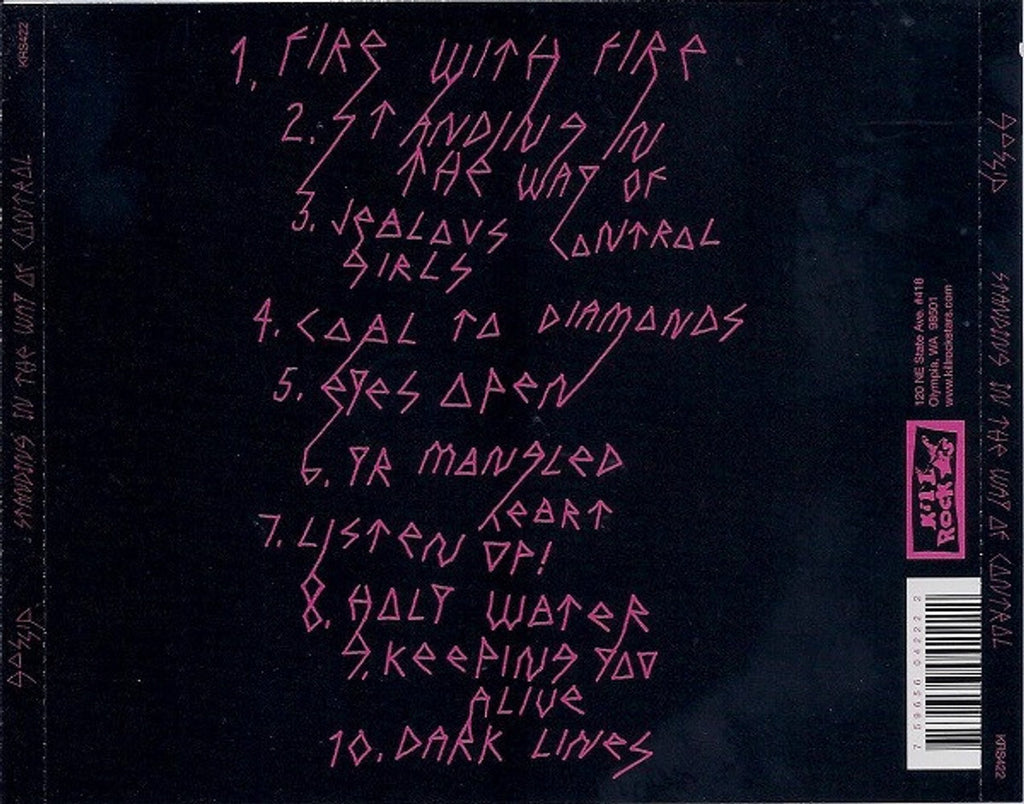 1. FIRE WITH FIRE
2. STANDING IN
THE WAY OF
CONTROL
3. JEALOUS
GIRLS
4. COAL TO DIAMONDS
5. EYES OPEN
6. YR MANGLED
HEART
7. LISTEN UP!
8. HOLY WATER
9. KEEPING YOU
ALIVE
10. DARK LINES
KRS422
STANDING IN THE WAY OF CONTROL
GOSSIP
GOSSIP
STANDING IN THE WAY OF CONTROL
KRS422
120 NE State Ave. #418
Olympia, WA 98501
www.killrockstars.com
KILL
ROCK
7 59656 04222 2